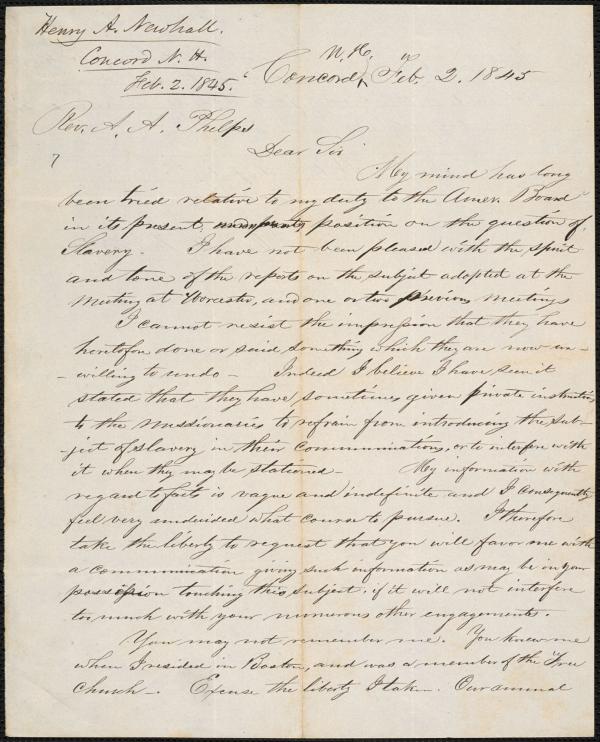 Henry A. Newhall.
Concord N. H.
Feb. 2. 1845.
Concord, N. H. Feb. 2. 1845
Rev. A. A. Phelps
Dear Sir
My mind has long
been tried relative to my duty to the Amer. Board
in its present position on the question of
Slavery. I have not been pleased with the spirit
and tone of the reports on the subject adopted at the
meeting at Worcester, and one or two previous meetings
I cannot resist the impression that they have
heretofore done or said something which they are now un-
-willing to undo - Indeed I believe I have seen it
stated that they have sometimes given private instructions
to the missionaries to refrain from introducing the sub-
-ject of slavery in their communications, or to interfere with
it when they may be stationed - My information with
regard to facts is vague and indefinite and I consequently
feel very undecided what course to pursue. I therefore
take the liberty to request that you will favor me with
a communication giving such information as may be in your
possession touching this subject, if it will not interfere
too much with your numerous other engagements.
You may not remember me. You knew me
when I resided in Boston, and was a member of the Free
Church -. Excuse the liberty I take -. Our annual